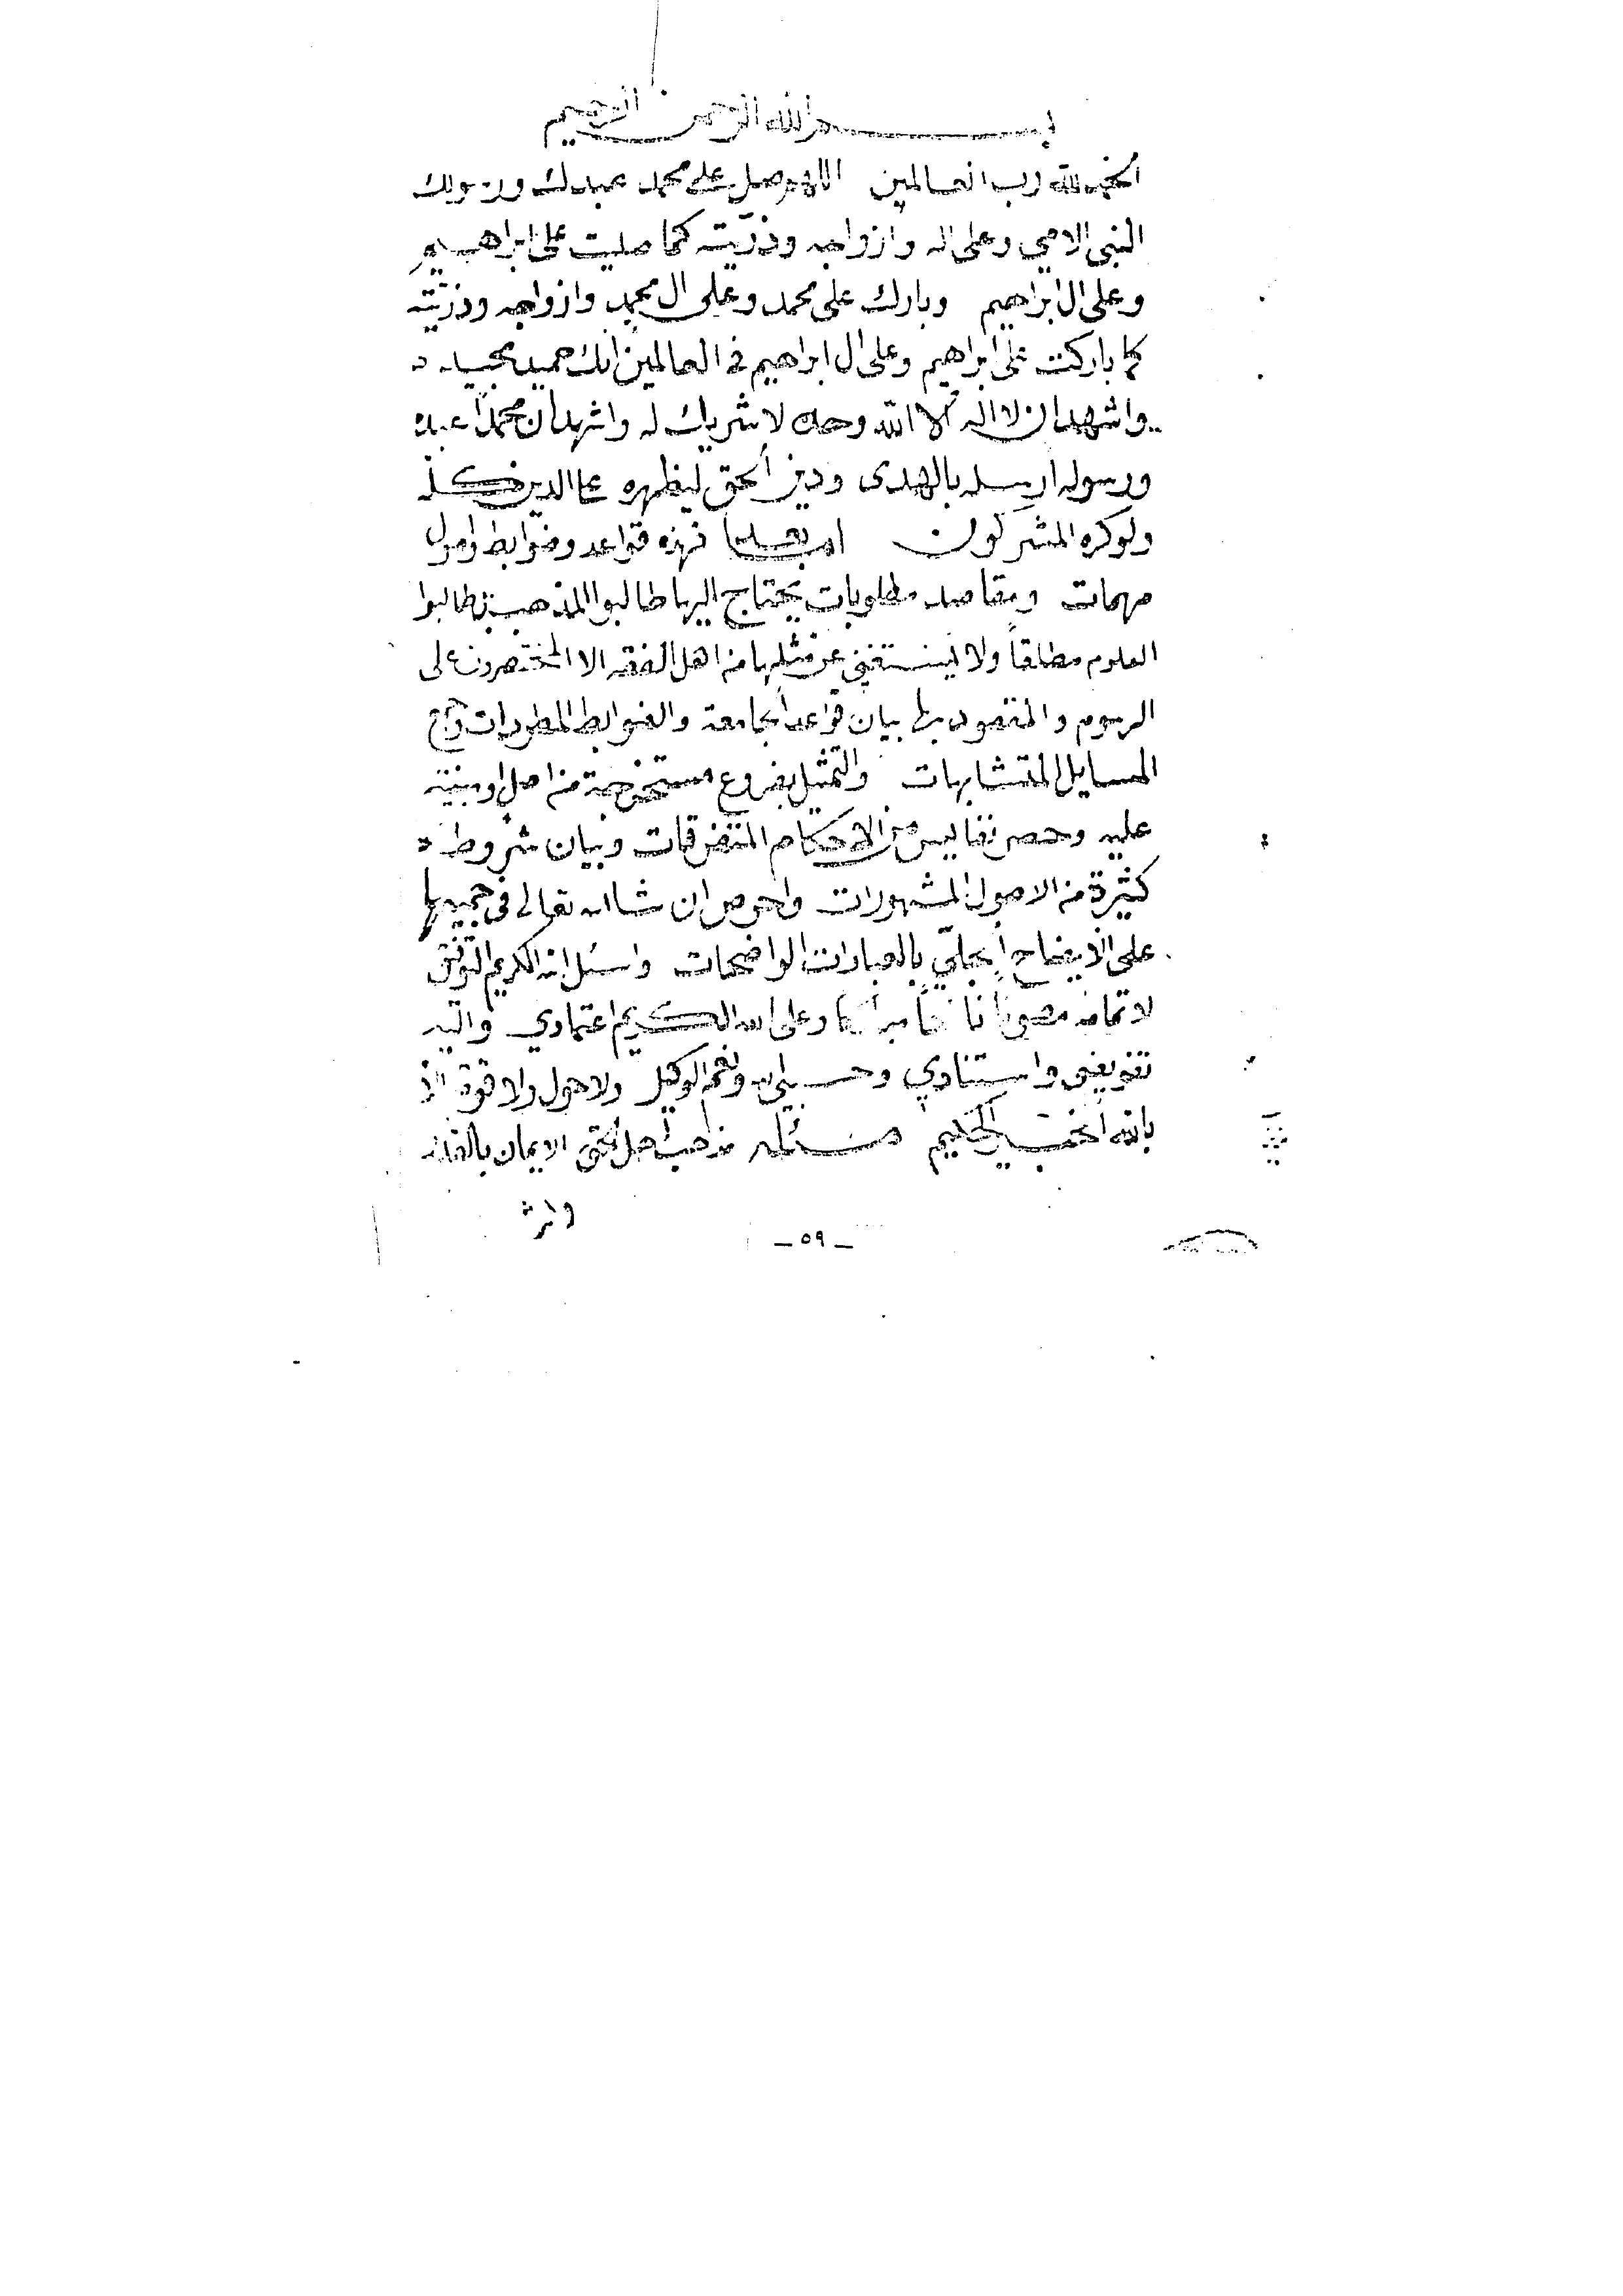 بسم الله الرحمن الرحيم
الحمد لله رب العالمين اللهم صل على محمد عبدك ورسولك
النبي الامي وعلى اله وازواجه وذريته كما صليت على ابراهيم
وعلى ال ابراهيم وبارك على محمد وعلى ال محمد وازواجه وذريته
كما باركت على ابراهيم وعلى ال ابراهيم في العالمين انك حميد مجيد
واشهد ان لا اله الا الله وحده لا شريك له واشهد ان محمداً عبده
ورسوله ارسله بالهدى ودين الحق ليظهره على الدين كله
ولو كره المشركون اما بعد فهذه قواعد وضوابط واصول
مهمات ومقاصد مطلوبات يحتاج اليها طالبوا المذهب بل طالبوا
العلوم مطلقاً ولا يستغني عن مثلها من اهل الفقه الا المقتصرون على
الرسوم والمقصود بها بيان قواعد جامعة والضوابط المطردات وجمع
المسايل المتشابهات والتمثيل بفروع مستخرجة من اصل او مبنية
عليه وحصر نفايس من الاحكام المتفرقات وبيان شروط
كثيرة من الاصول المشهورات واحرص ان شا الله تعالى في جميعها
على الايضاح الجلي بالعبارات الواضحات واسئل الله الكريم التوفيق
لاتمامه مصوناً وعلى الله الكريم اعتمادي واليه
تفويضي واستنادي وحسبي الله ونعم الوكيل ولا حول ولا قوة الا
بالله الحكيم مسئلة مذهب اهل الحق الايمان بالقدر
واثبا
ـ ٥٩ ـ